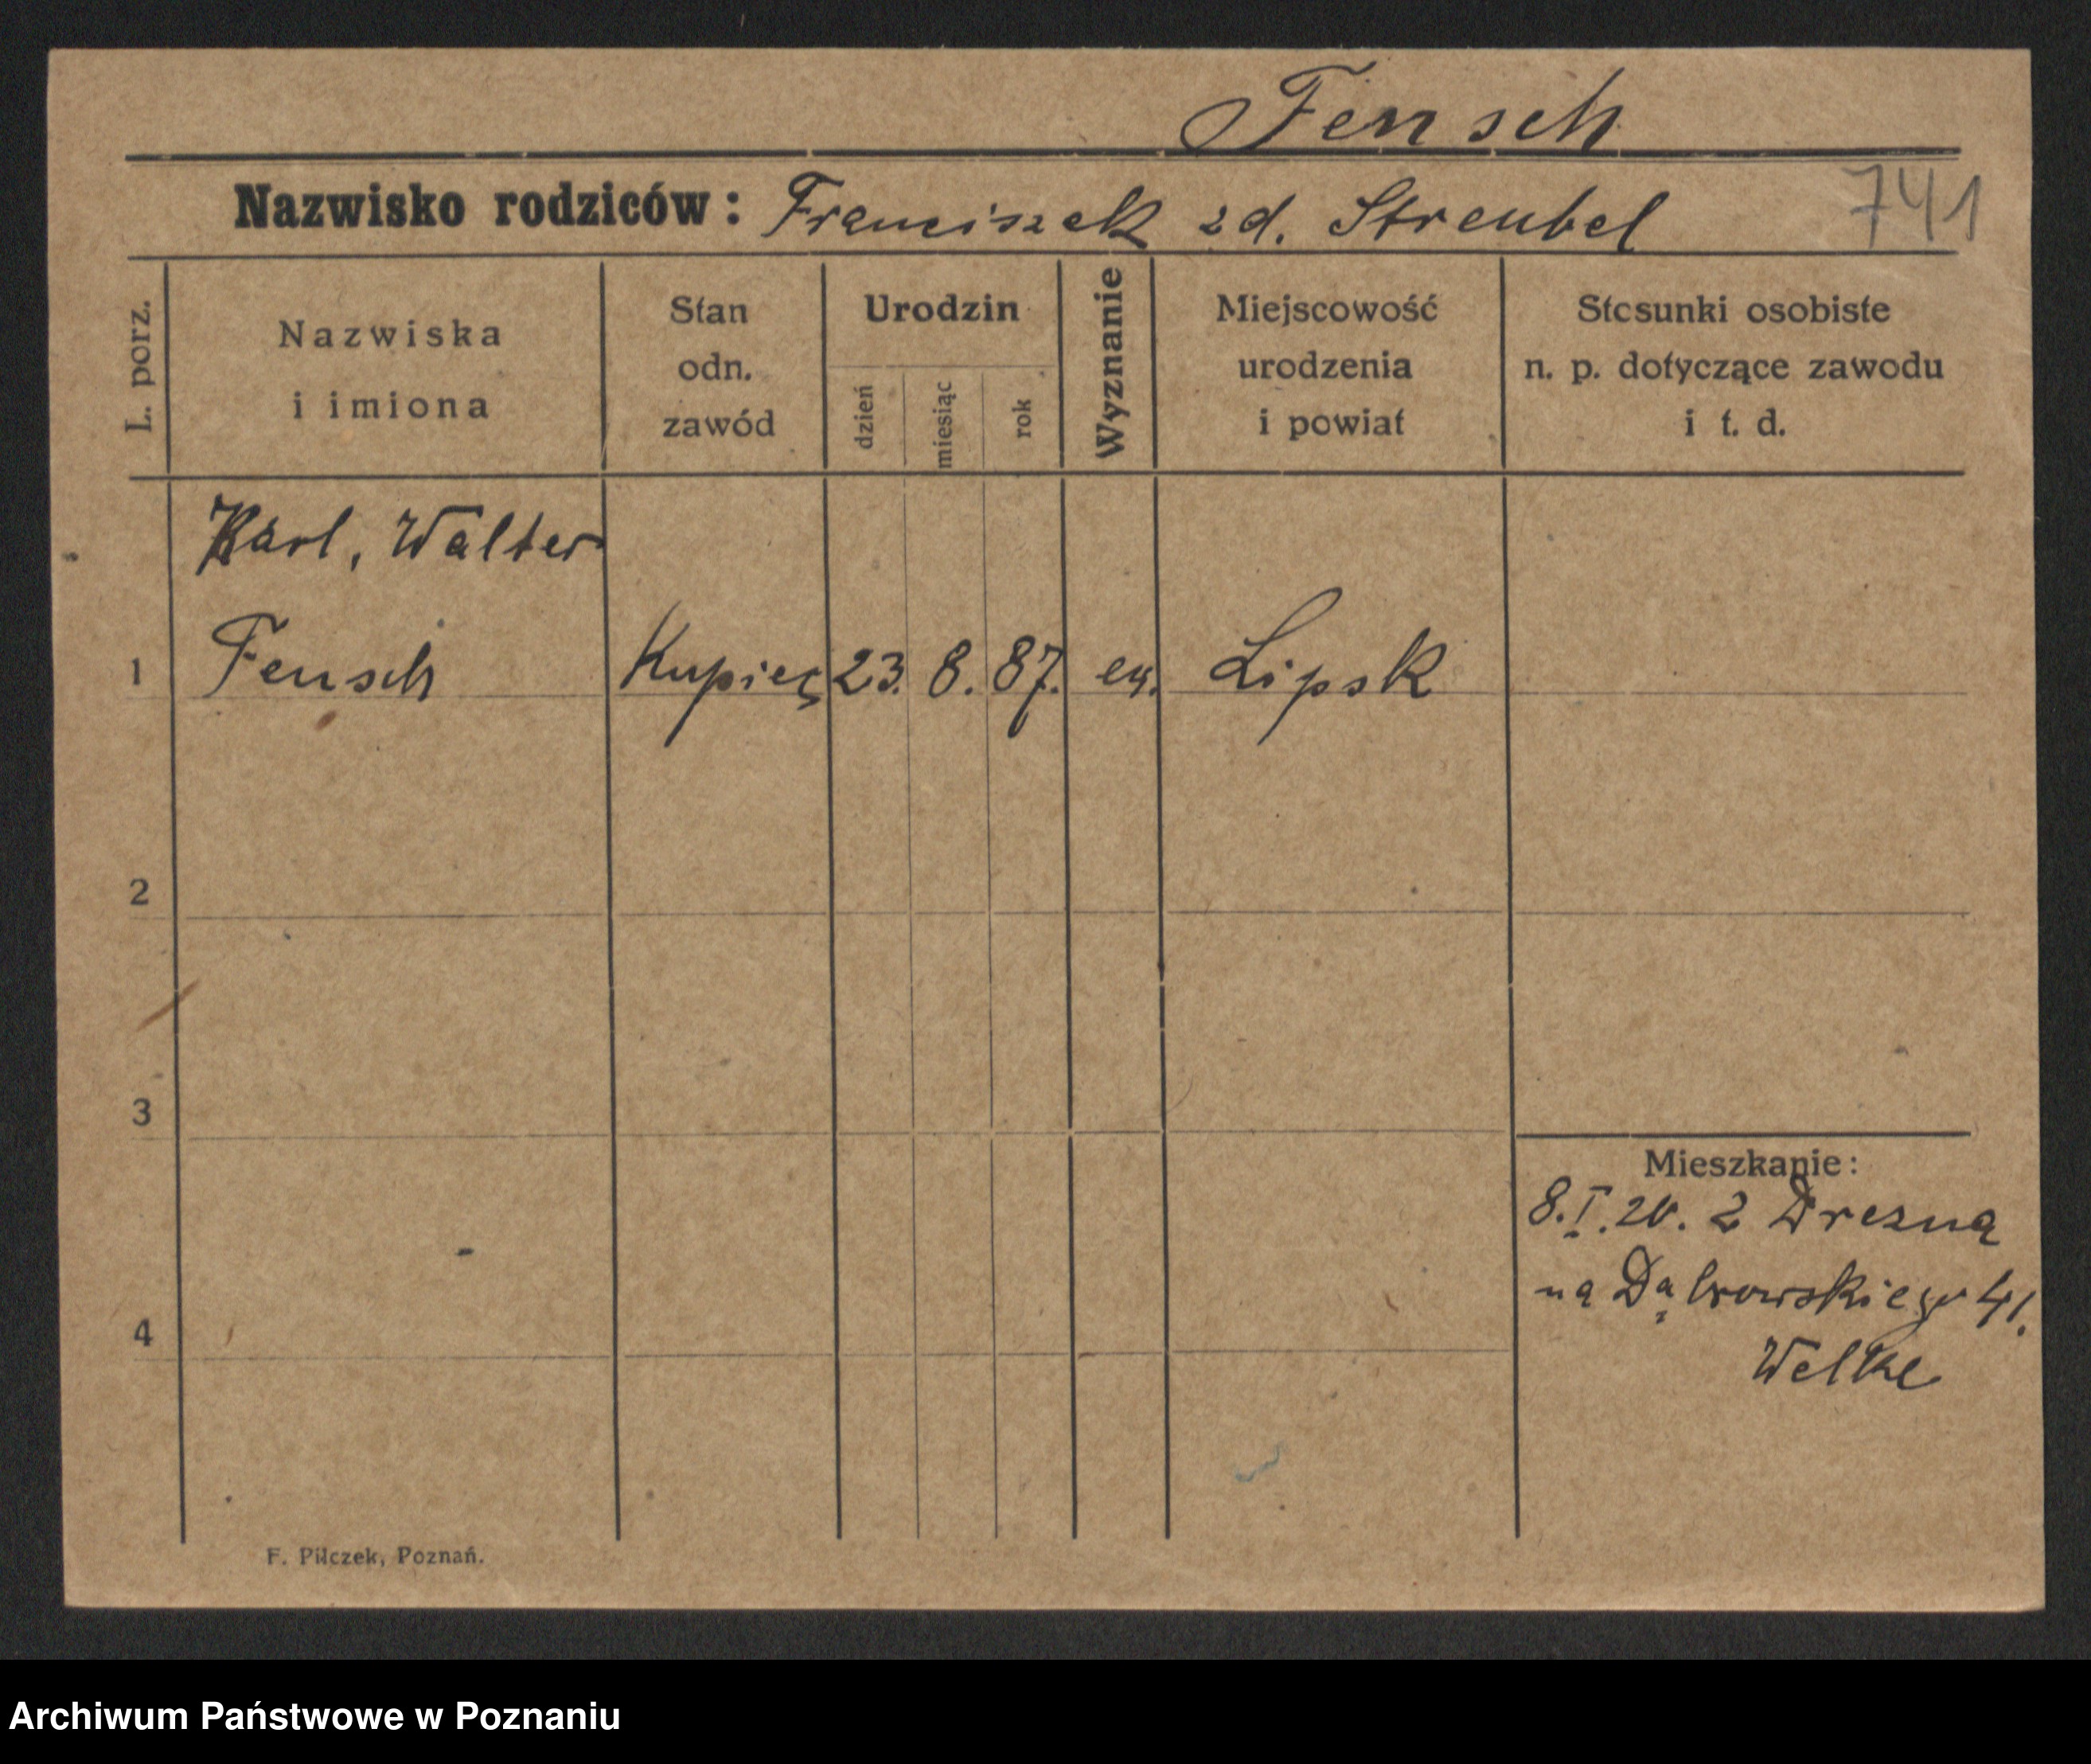 Fensch
Nazwisko rodziców: Franciszek zd. Streubel
741
L. porz.
Nazwiska
i imiona
Stan
odn.
zawód
Urodzin
dzień
miesiąc
rok
Wyznanie
Miejscowość
urodzenia
i powiat
Stosunki osobiste
n. p. dotyczące zawodu
i t. d.
Karl, Walter
1 Fensch Kupiec 23. 8. 87. ew. Lipsk
2
3
4
Mieszkanie:
8.I.20. z Drezna
na Dąbrowskiego 41.
Welke
F. Pilczek, Poznań.
Archiwum Państwowe w Poznaniu